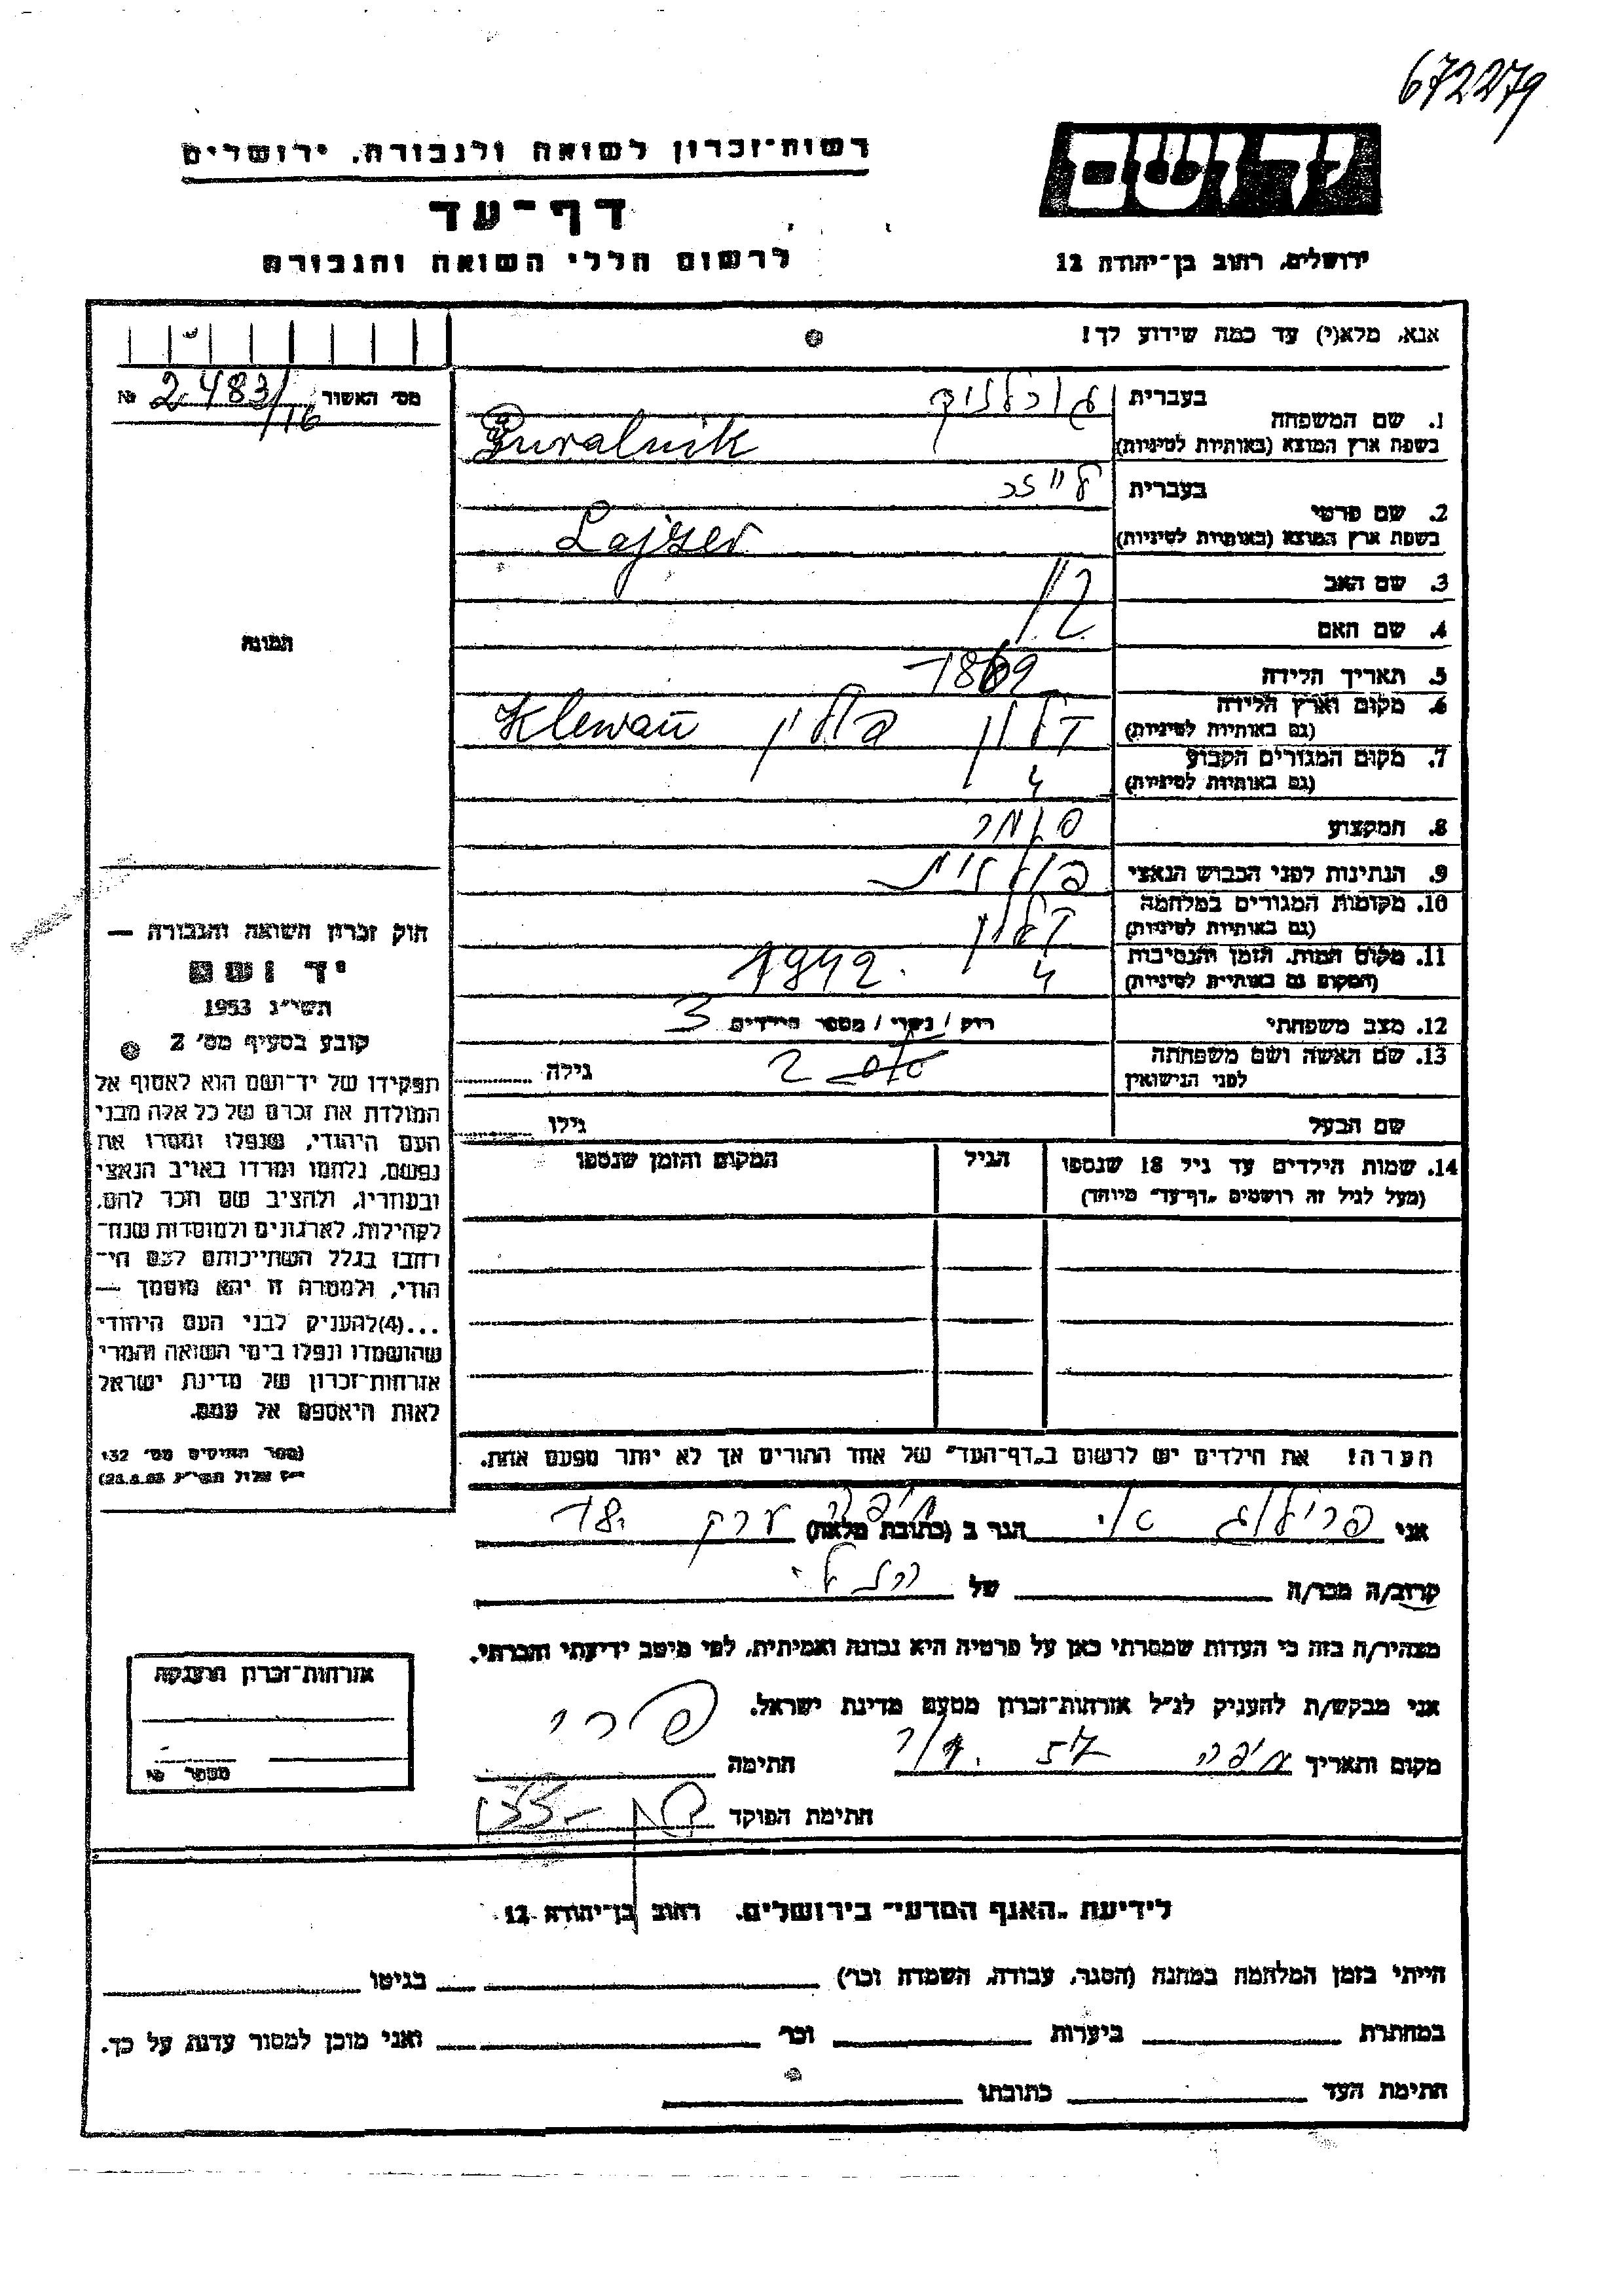 672279
רשות-זכרון לשואה ולגבורה, ירושלים
יד ושם
דף-עד
לרשום חללי השואה והגבורה
ירושלים, רחוב בן-יהודה 12
אנא, מלא(י) עד כמה שידוע לך!
מס' האשור 2483/16 №
1. שם המשפחה
בעברית
בשפת ארץ המוצא (באותיות לטיניות)
2. שם פרטי
בעברית לייזר
בשפת ארץ המוצא (באותיות לטיניות) Lajzer
3. שם האב
4. שם האם
5. תאריך הלידה 1869
6. מקום וארץ הלידה
(גם באותיות לטיניות) פולין Klewań
7. מקום המגורים הקבוע
(גם באותיות לטיניות)
8. המקצוע סוחר
9. הנתינות לפני הכבוש הנאצי פולנית
10. מקומות המגורים במלחמה
(גם באותיות לטיניות)
11. מקום המות, הזמן והנסיבות
(המקום גם באותיות לטיניות) 1942.
12. מצב משפחתי רווק / נשוי / מספר הילדים 3
13. שם האשה ושם משפחתה
לפני הנישואין
גילה
שם הבעל גילו
14. שמות הילדים עד גיל 18 שנספו
(מעל לגיל זה רושמים "דף-עד" מיוחד)
הגיל
המקום והזמן שנספו
הערה! את הילדים יש לרשום ב"דף-העד" של אחד ההורים אך לא יותר מפעם אחת.
התמונה
חוק זכרון השואה והגבורה —
יד ושם
תשי"ג 1953
קובע בסעיף מס' 2
תפקידו של יד-ושם הוא לאסוף אל
המולדת את זכרם של כל אלה מבני
העם היהודי, שנפלו ומסרו את
נפשם, נלחמו ומרדו באויב הנאצי
ובעוזריו, ולהציב שם וזכר להם,
לקהילות, לארגונים ולמוסדות שנח-
רבו בגלל השתייכותם לעם הי-
הודי, ולמטרה זו יהא מוסמך —
...(4)להעניק לבני העם היהודי
שהושמדו ונפלו בימי השואה והמרי
אזרחות-זכרון של מדינת ישראל
לאות היאספם אל עמם.
(ספר החוקים מס' 132
י"ז אלול תשי"ג 28.8.53)
אני הגר ב (כתובת מלאה) חיפה 18
קרוב/ה מכר/ה של
מצהיר/ה בזה כי העדות שמסרתי כאן על פרטיה היא נכונה ואמיתית, לפי מיטב ידיעתי והכרתי.
אני מבקש/ת להעניק לנ"ל אזרחות-זכרון מטעם מדינת ישראל.
מקום ותאריך חיפה חתימה
חתימת הפוקד
אזרחות-זכרון הוענקה
מספר №
לידיעת "האגף המדעי" בירושלים, רחוב בן-יהודה 12
הייתי בזמן המלחמה במחנה (הסגר, עבודה, השמדה וכר') בגיטו
במחתרת ביערות וכר' ואני מוכן למסור עדות על כך.
חתימת העד כתובתו